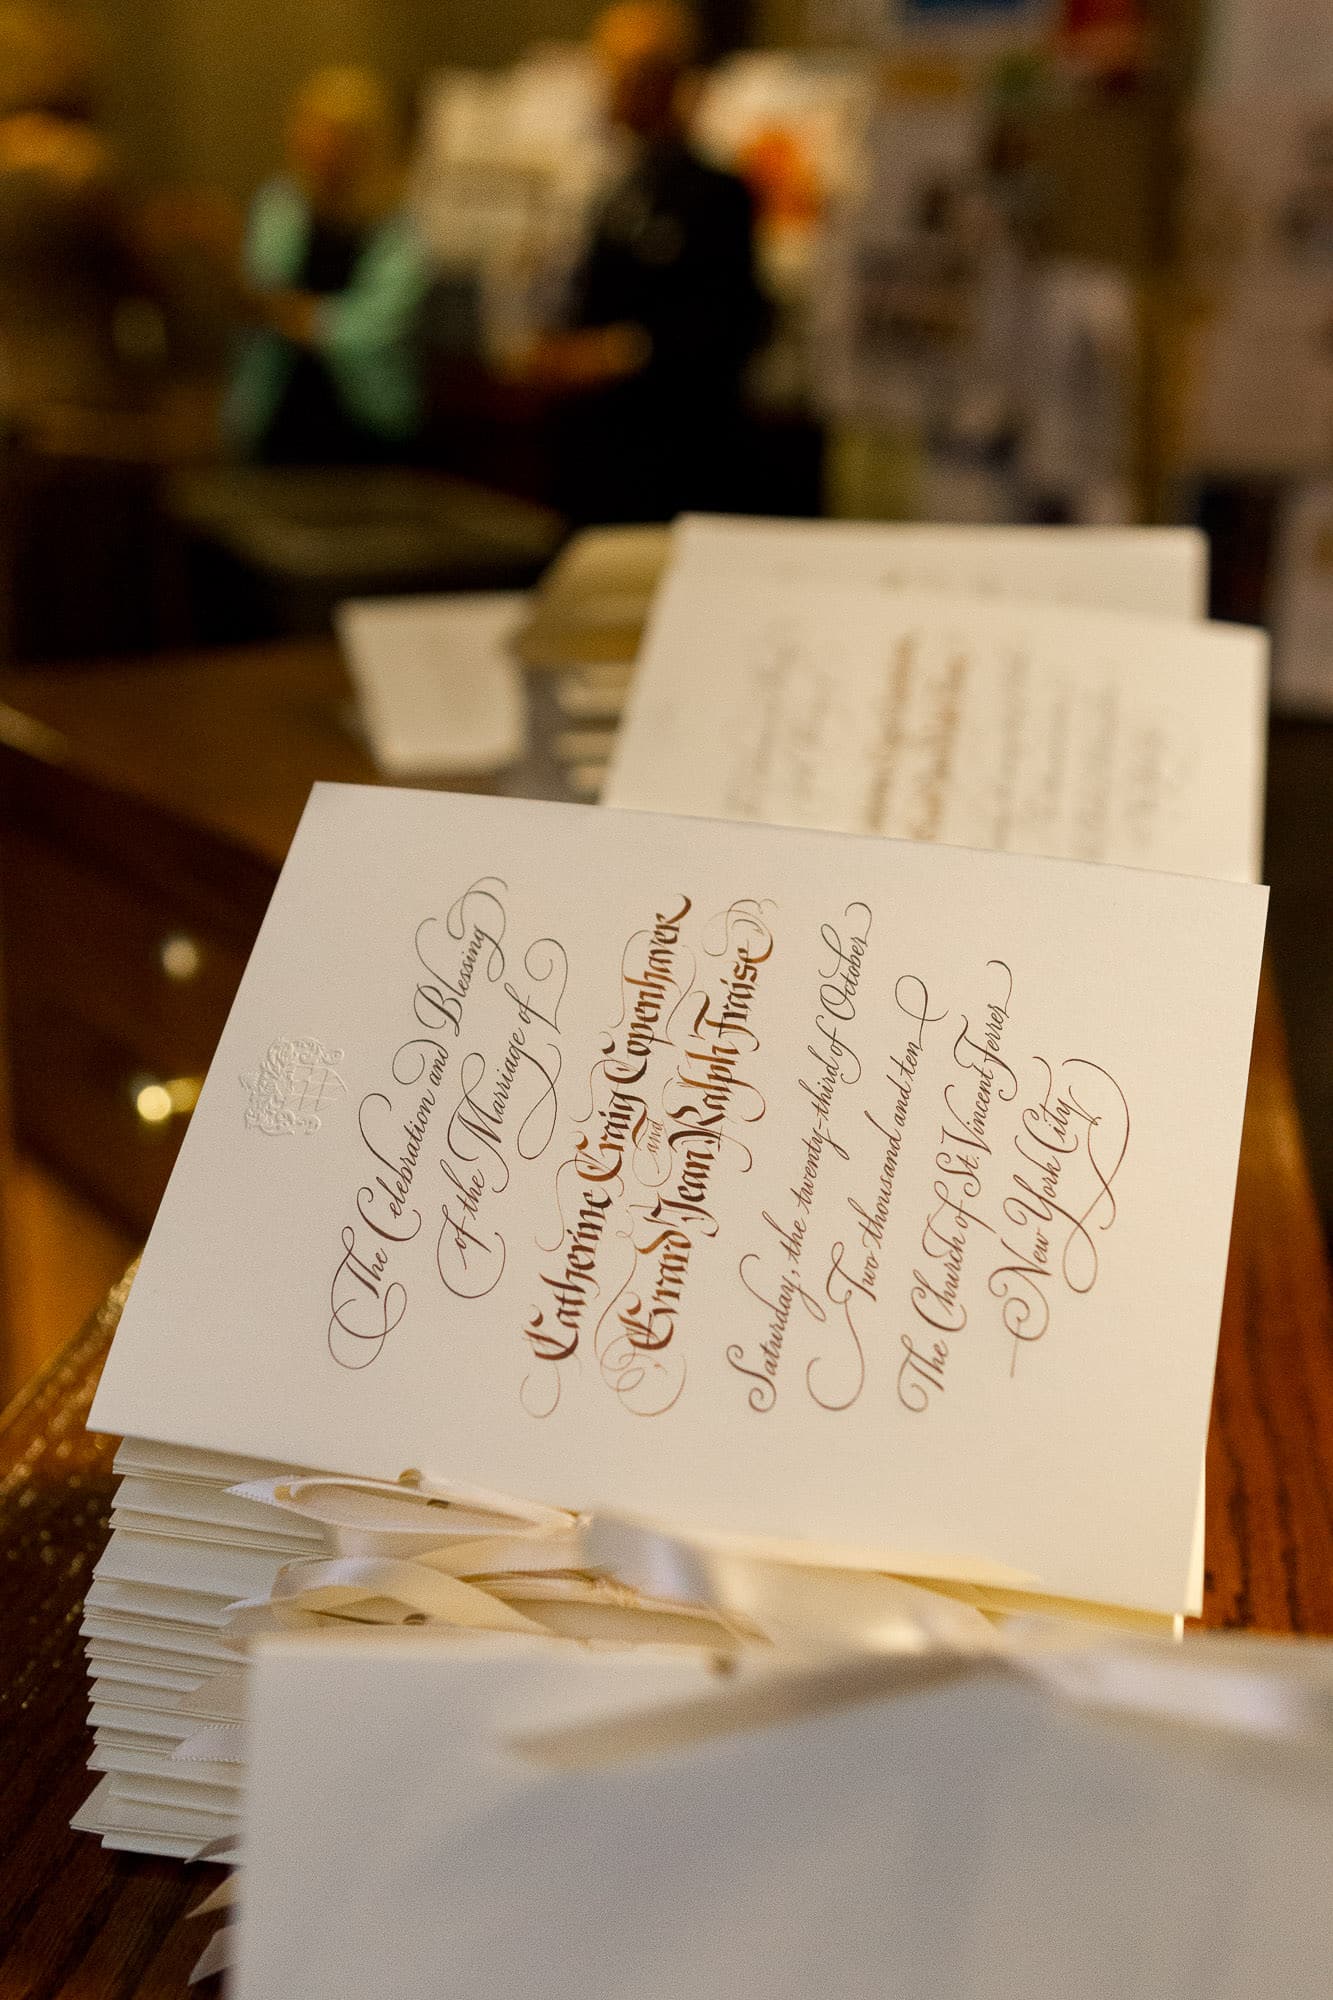 The Celebration and Blessing
of the Marriage of
Catherine Craig Copenhaver
and
Evrard Jean Ralph Fraise
Saturday, the twenty-third of October
Two thousand and ten
The Church of St. Vincent Ferrer
New York City